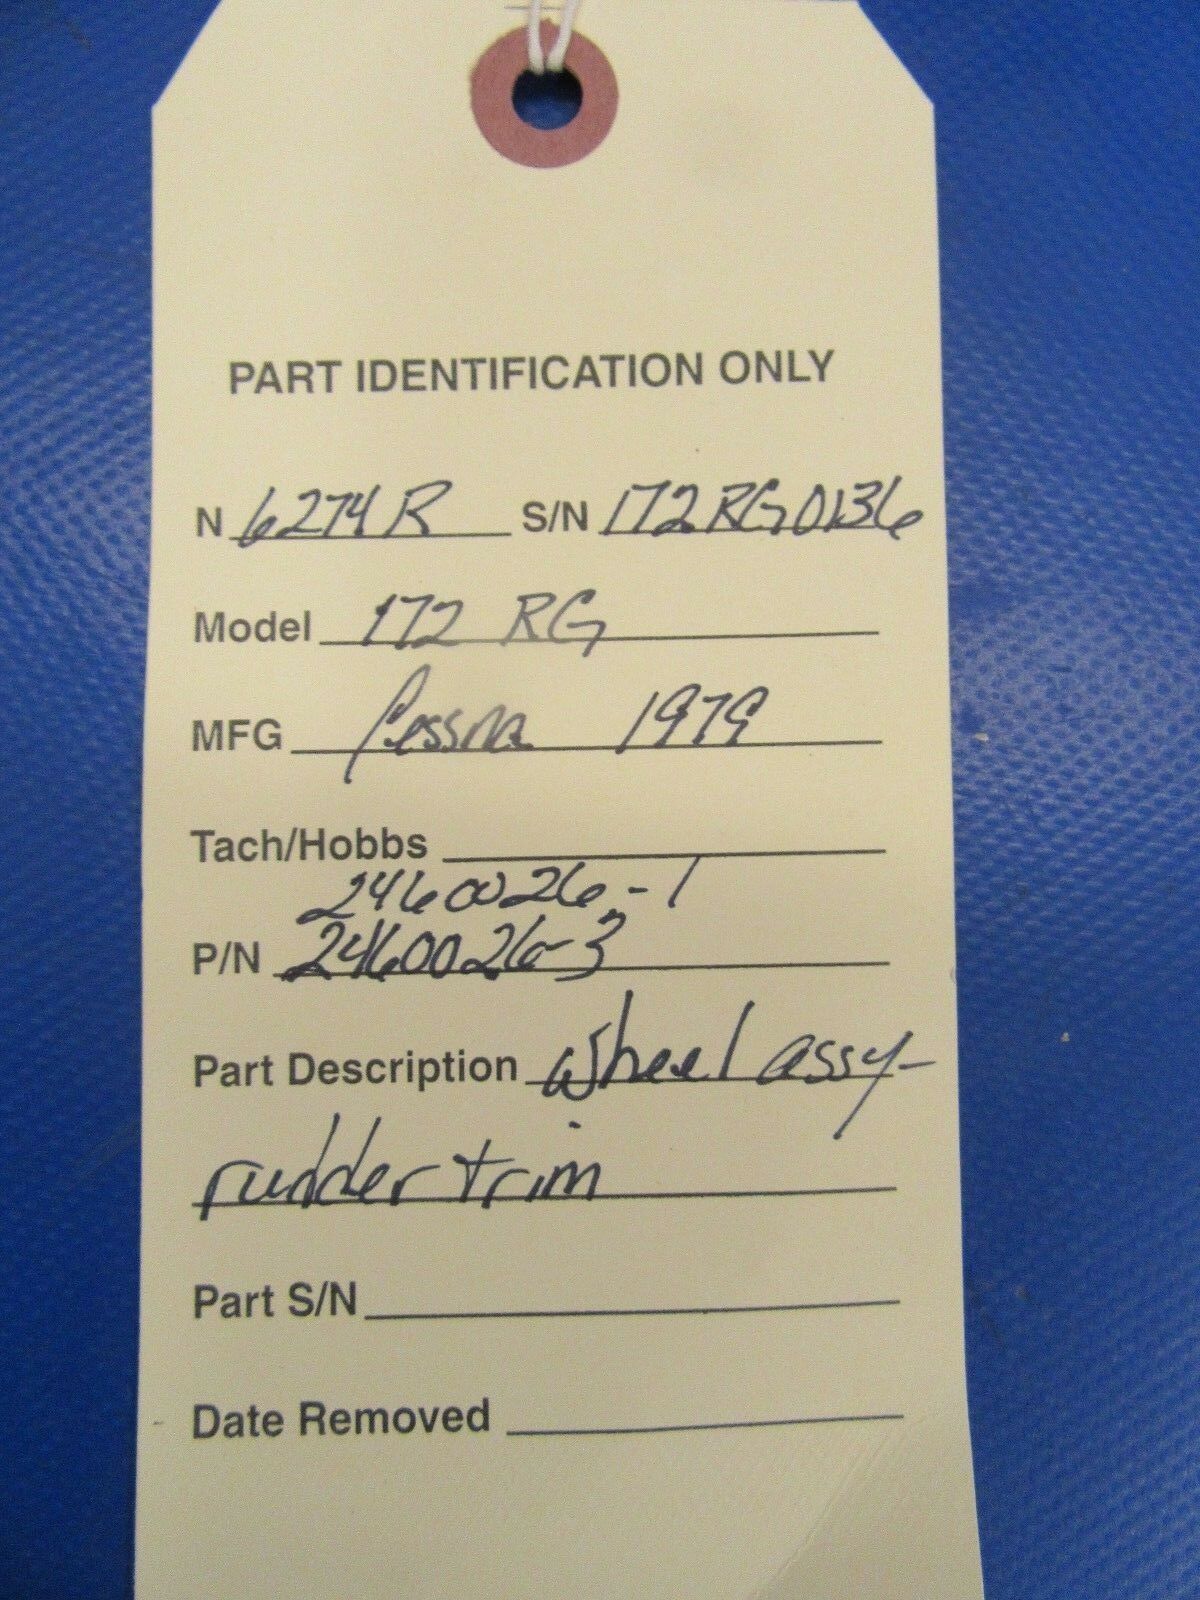 PART IDENTIFICATION ONLY
N 6274R S/N 172RG0136
Model 172 RG
MFG Cessna 1979
Tach/Hobbs
2460026-1
P/N 2460026-3
Part Description wheel assy-
rudder trim
Part S/N
Date Removed